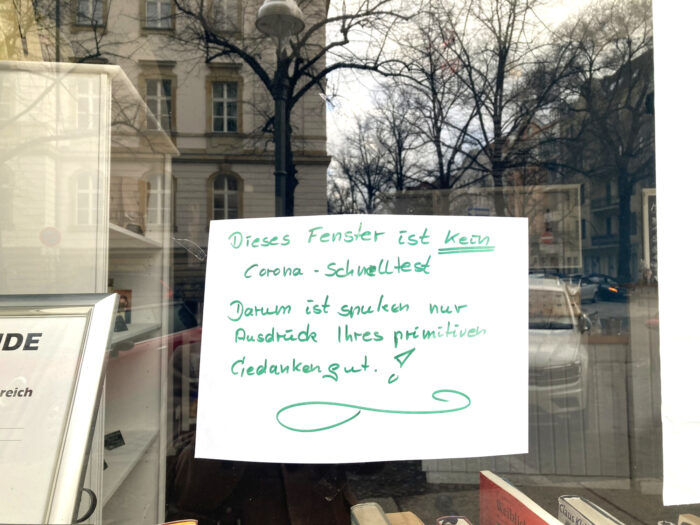 Dieses Fenster ist kein
Corona - Schnelltest
Darum ist spuken nur
Ausdrück Ihres primitiven
Gedankengut.!
NDE
reich
weiblich